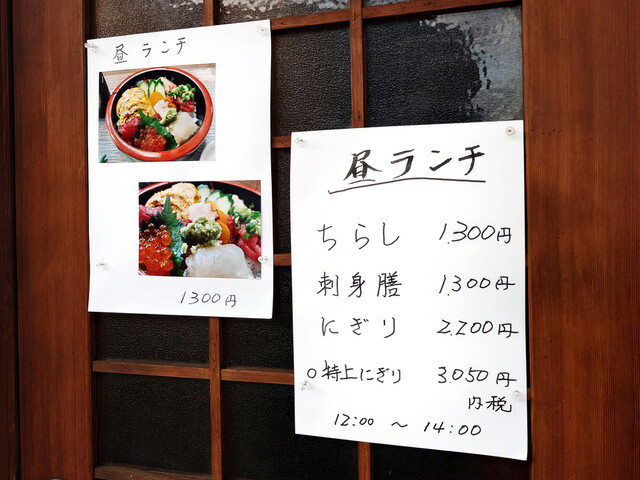 昼ランチ
1300円
昼ランチ
ちらし 1.300円
刺身膳 1.300円
にぎり 2.200円
○特上にぎり 3.050円
内税
12:00 〜 14:00